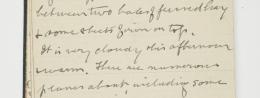 between two bales of pressed hay
& some sheets given on top.
It is very cloudy this afternoon
warm. There are numerous
planes about, including some